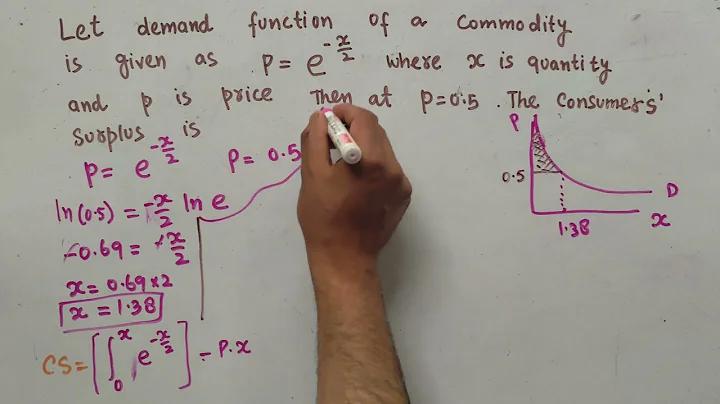 Let demand function of a Commodity
is given as P = e^{-x/2} where x is quantity
and p is price Then at p=0.5 . The Consumers'
Surplus is
P = e^{-x/2} P = 0.5
ln(0.5) = -x/2 ln e
-0.69 = -x/2
x = 0.69×2
x = 1.38
CS = [∫_0^x e^{-x/2}] - P.x
P
0.5
D
1.38 x